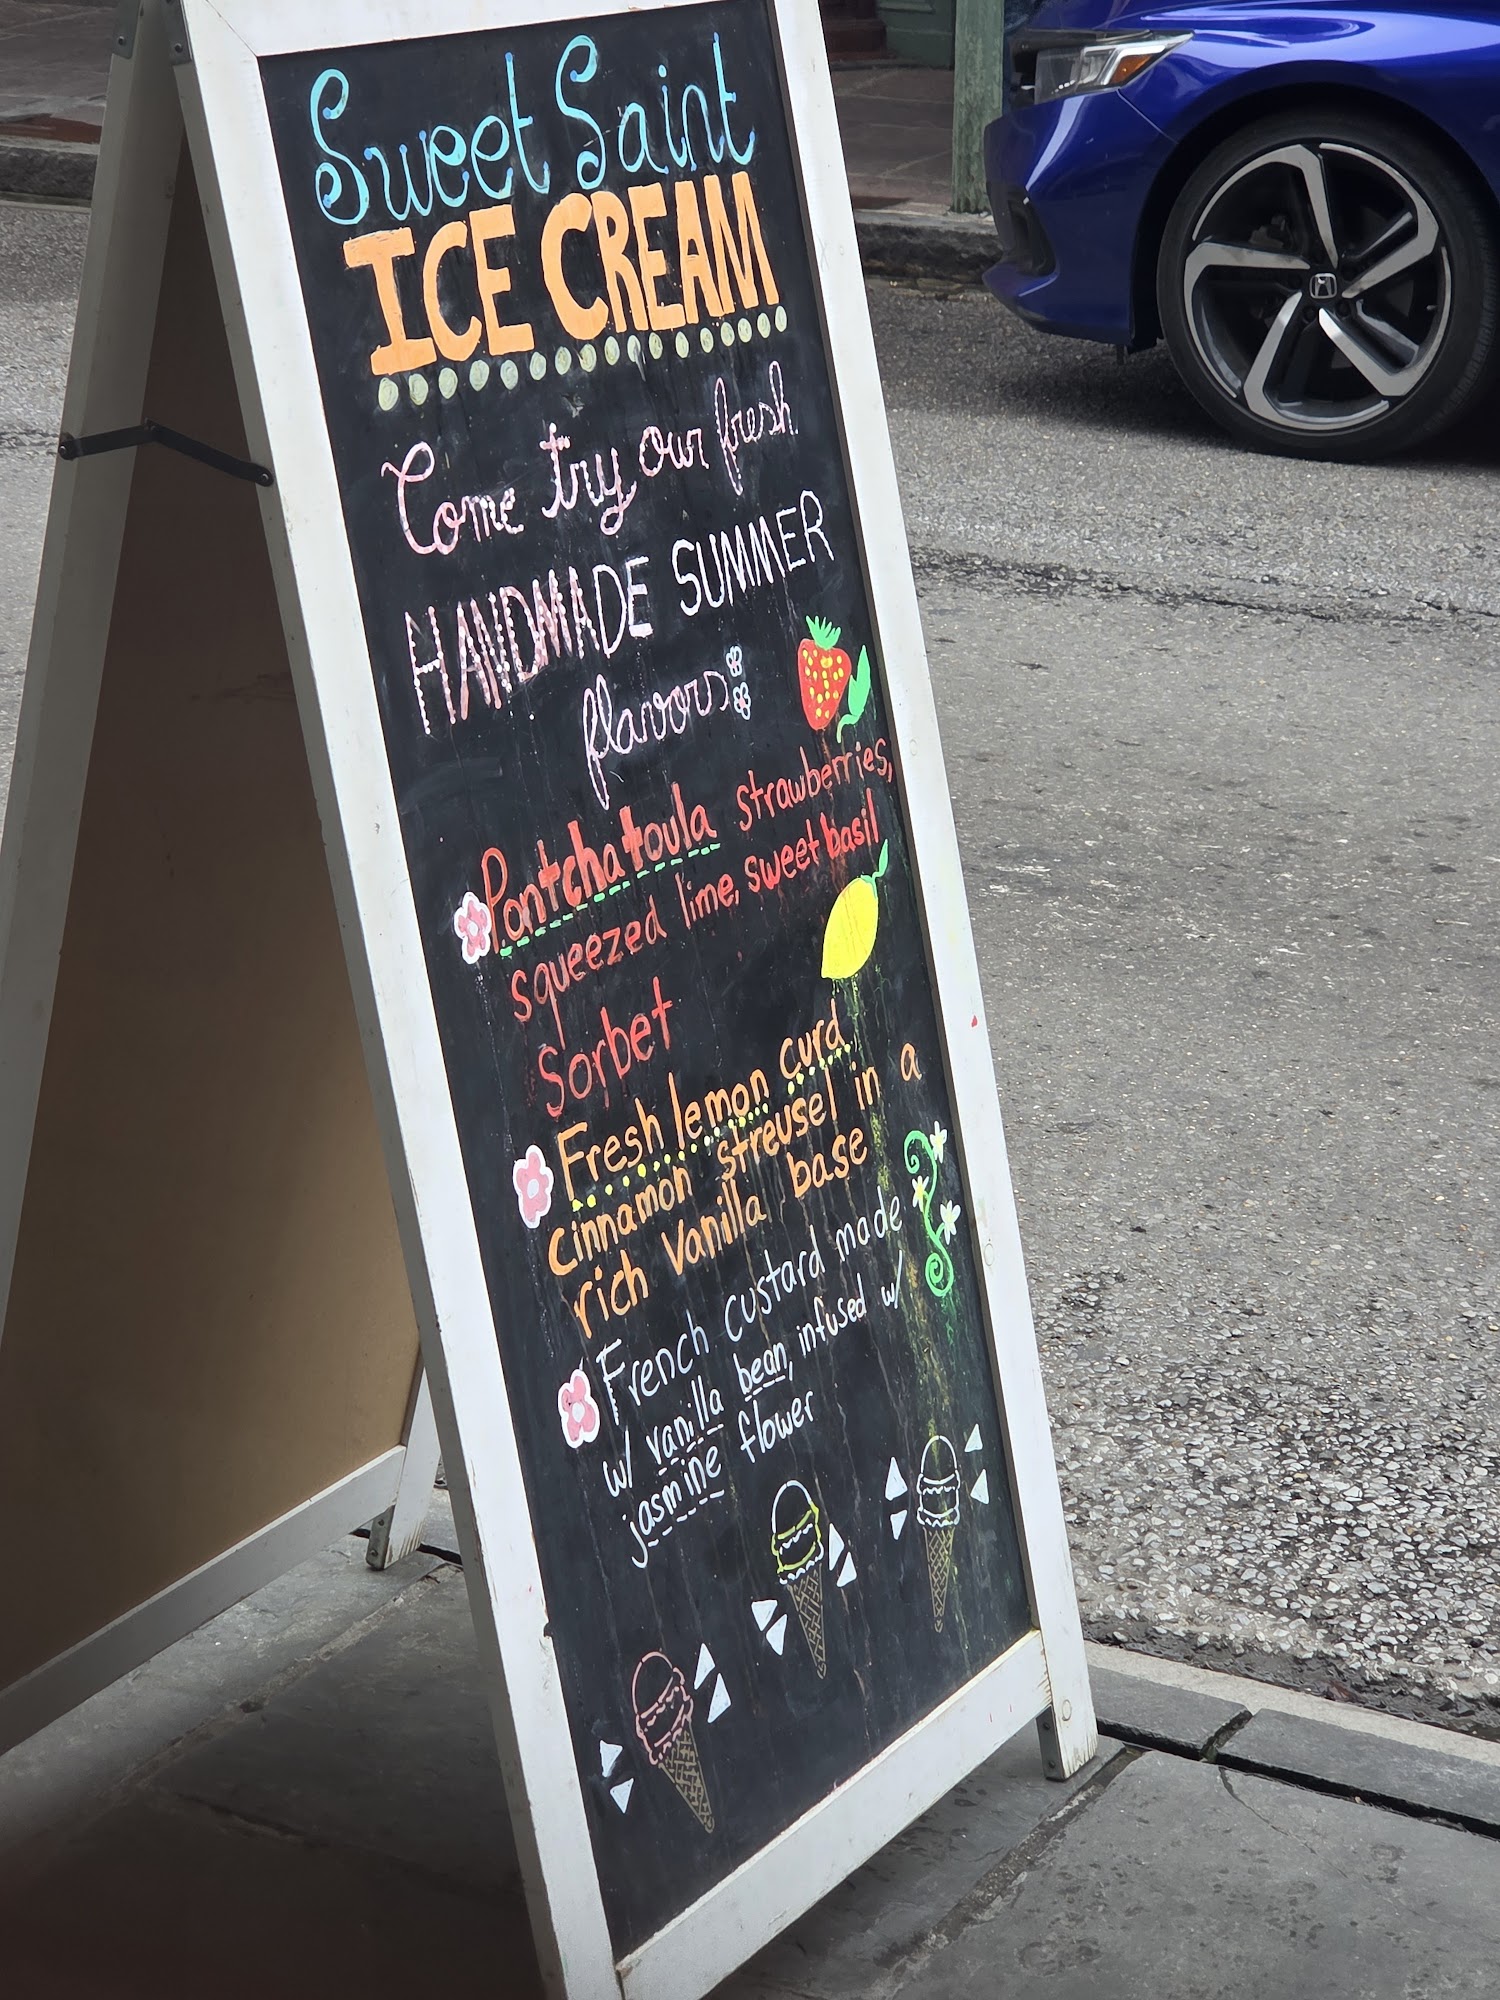 Sweet Saint
ICE CREAM
Come try our fresh
HANDMADE SUMMER
flavors
Pontchatoula strawberries,
squeezed lime, sweet basil
Sorbet
Fresh lemon curd
cinnamon streusel in a
rich vanilla base
French custard made
w/ vanilla bean, infused w/
jasmine flower